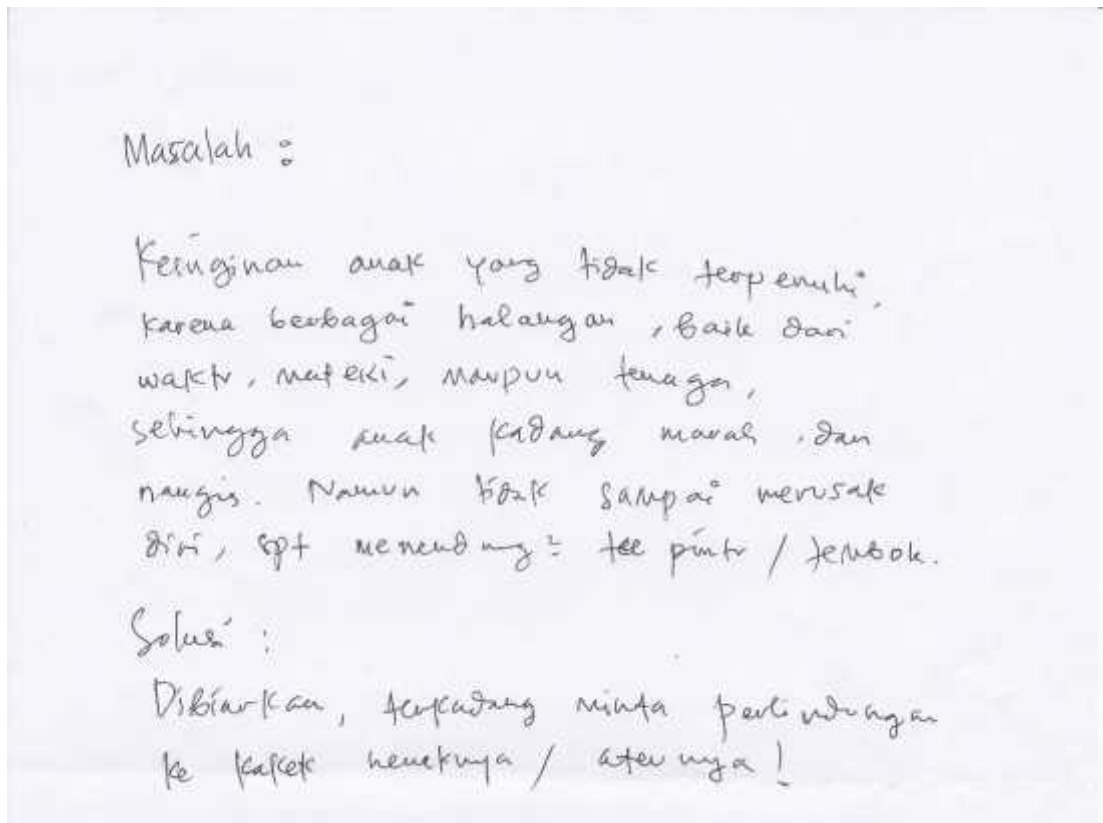 Masalah :
Keinginan anak yang tidak terpenuhi,
karena berbagai halangan, baik dari
waktu, materi, maupun tenaga,
sehingga anak kadang marah, dan
nangis. Namun tidak sampai merusak
diri, spt menendang² pintu / tembok.
Solusi :
Dibiarkan, terkadang minta perlindungan
ke kakek neneknya /